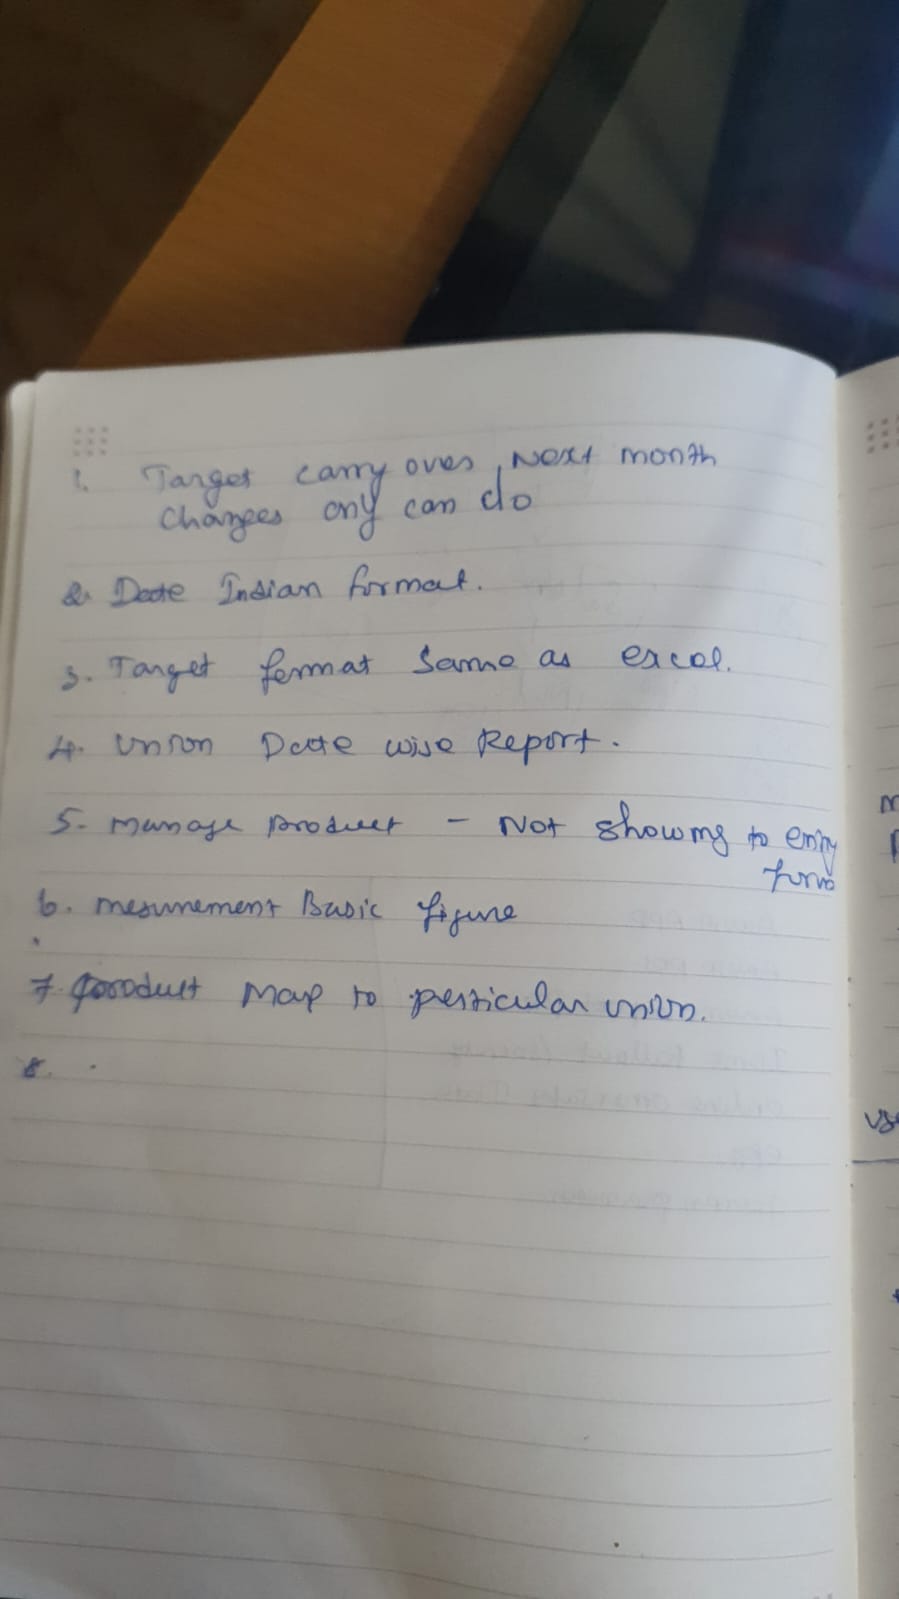 1. Target carry over, Next month
Changes only can do
2. Date Indian format.
3. Target format Same as excel.
4. Union Date wise Report.
5- manage product - Not showing to entry
form
6. mesurement Basic figure
7. product map to perticular union.
8.